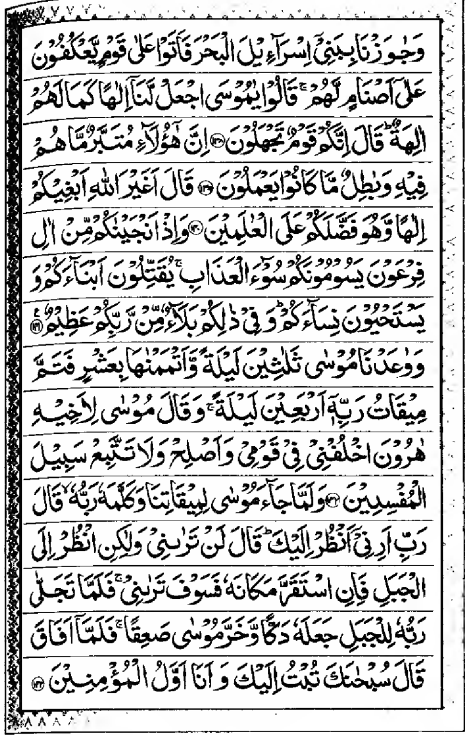 وَجٰوَزْنَا بِبَنِيْٓ اِسْرَآءِيْلَ الْبَحْرَ فَاَتَوْا عَلٰى قَوْمٍ يَّعْكُفُوْنَ
عَلٰٓى اَصْنَامٍ لَّهُمْ ۚ قَالُوْا يٰمُوْسَى اجْعَلْ لَّنَآ اِلٰهًا كَمَا لَهُمْ
اٰلِهَةٌ ؕ قَالَ اِنَّكُمْ قَوْمٌ تَجْهَلُوْنَ ﴿۱۳۸﴾ اِنَّ هٰٓؤُلَآءِ مُتَبَّرٌ مَّا هُمْ
فِيْهِ وَبٰطِلٌ مَّا كَانُوْا يَعْمَلُوْنَ ﴿۱۳۹﴾ قَالَ اَغَيْرَ اللّٰهِ اَبْغِيْكُمْ
اِلٰهًا وَّهُوَ فَضَّلَكُمْ عَلَى الْعٰلَمِيْنَ ﴿۱۴۰﴾ وَاِذْ اَنْجَيْنٰكُمْ مِّنْ اٰلِ
فِرْعَوْنَ يَسُوْمُوْنَكُمْ سُوْٓءَ الْعَذَابِ ۚ يُقَتِّلُوْنَ اَبْنَآءَكُمْ وَ
يَسْتَحْيُوْنَ نِسَآءَكُمْ ؕ وَفِيْ ذٰلِكُمْ بَلَآءٌ مِّنْ رَّبِّكُمْ عَظِيْمٌ ﴿۱۴۱﴾
وَوٰعَدْنَا مُوْسٰى ثَلٰثِيْنَ لَيْلَةً وَّاَتْمَمْنٰهَا بِعَشْرٍ فَتَمَّ
مِيْقَاتُ رَبِّهٖٓ اَرْبَعِيْنَ لَيْلَةً ۚ وَقَالَ مُوْسٰى لِاَخِيْهِ
هٰرُوْنَ اخْلُفْنِيْ فِيْ قَوْمِيْ وَاَصْلِحْ وَلَا تَتَّبِعْ سَبِيْلَ
الْمُفْسِدِيْنَ ﴿۱۴۲﴾ وَلَمَّا جَآءَ مُوْسٰى لِمِيْقَاتِنَا وَكَلَّمَهٗ رَبُّهٗ ۙ قَالَ
رَبِّ اَرِنِيْٓ اَنْظُرْ اِلَيْكَ ؕ قَالَ لَنْ تَرٰىنِيْ وَلٰكِنِ انْظُرْ اِلَى
الْجَبَلِ فَاِنِ اسْتَقَرَّ مَكَانَهٗ فَسَوْفَ تَرٰىنِيْ ۚ فَلَمَّا تَجَلّٰى
رَبُّهٗ لِلْجَبَلِ جَعَلَهٗ دَكًّا وَّخَرَّ مُوْسٰى صَعِقًا ۚ فَلَمَّآ اَفَاقَ
قَالَ سُبْحٰنَكَ تُبْتُ اِلَيْكَ وَاَنَا اَوَّلُ الْمُؤْمِنِيْنَ ﴿۱۴۳﴾